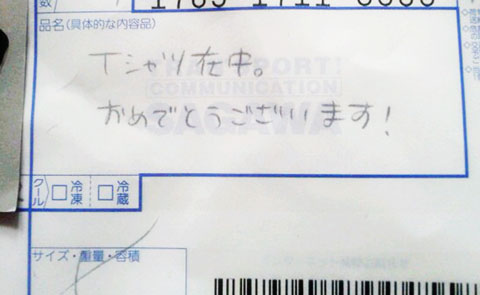 数
品名(具体的な内容品)
Tシャツ在中。
おめでとうございます!
TRANSPORT!
COMMUNICATION
SAGAWA
クール
冷凍
冷蔵
サイズ・重量・容積